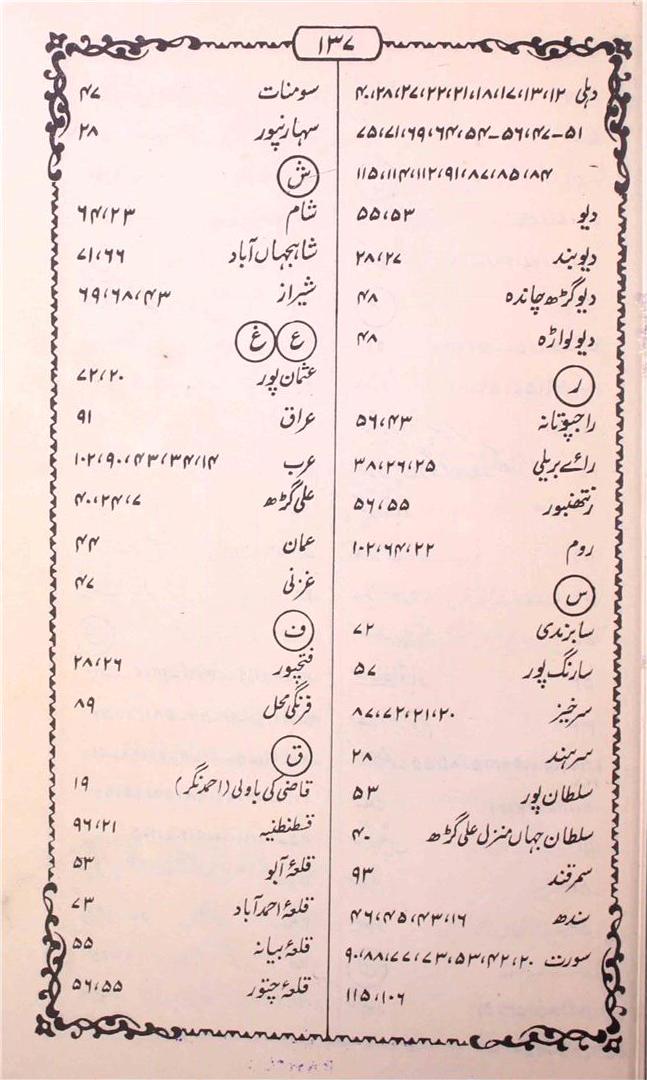 ۱۳۷
دہلی ۱۲،۱۳،۱۷،۱۸،۲۱،۲۲،۲۷،۲۸،۴۰
۴۷-۵۱،۵۴-۵۶،۶۴،۶۹،۷۱،۷۵
۸۴،۸۵،۸۷،۹۱،۱۱۲،۱۱۴،۱۱۵
دیو ۵۳،۵۵
دیوبند ۲۷،۲۸
دیوگڑھ چاندہ ۴۸
دیولواڑہ ۴۸
ر
راجپوتانہ ۴۳،۵۶
رائے بریلی ۲۵،۲۶،۳۸
رنتھنبور ۵۵،۵۶
روم ۲۲،۶۴،۱۰۲
س
سابرندی ۷۲
سارنگ پور ۵۷
سرخیز ۲۰،۲۱،۷۲،۸۷
سرہند ۲۸
سلطان پور ۵۳
سلطان جہاں منزل علی گڑھ ۴۰
سمرقند ۹۳
سندھ ۱۶،۴۳،۴۵،۴۶
سورت ۲۰،۴۲،۵۳،۷۳،۷۷،۸۸،۹۰
۱۰۶،۱۱۵
سومنات ۴۷
سہارنپور ۲۸
ش
شام ۲۳،۶۴
شاہجہاں آباد ۶۶،۷۱
شیراز ۴۳،۶۸،۶۹
ع غ
عثمان پور ۲۰،۷۲
عراق ۹۱
عرب ۱۴،۳۴،۴۳،۹۰،۱۰۲
علی گڑھ ۷،۲۴،۴۰
عمان ۴۴
غزنی ۴۷
ف
فتحپور ۲۶،۲۸
فرنگی محل ۸۹
ق
قاضی کی باولی (احمد نگر) ۱۹
قسطنطنیہ ۲۱،۹۶
قلعۂ آبو ۵۳
قلعۂ احمد آباد ۷۳
قلعۂ بیانہ ۵۵
قلعۂ چتور ۵۵،۵۶